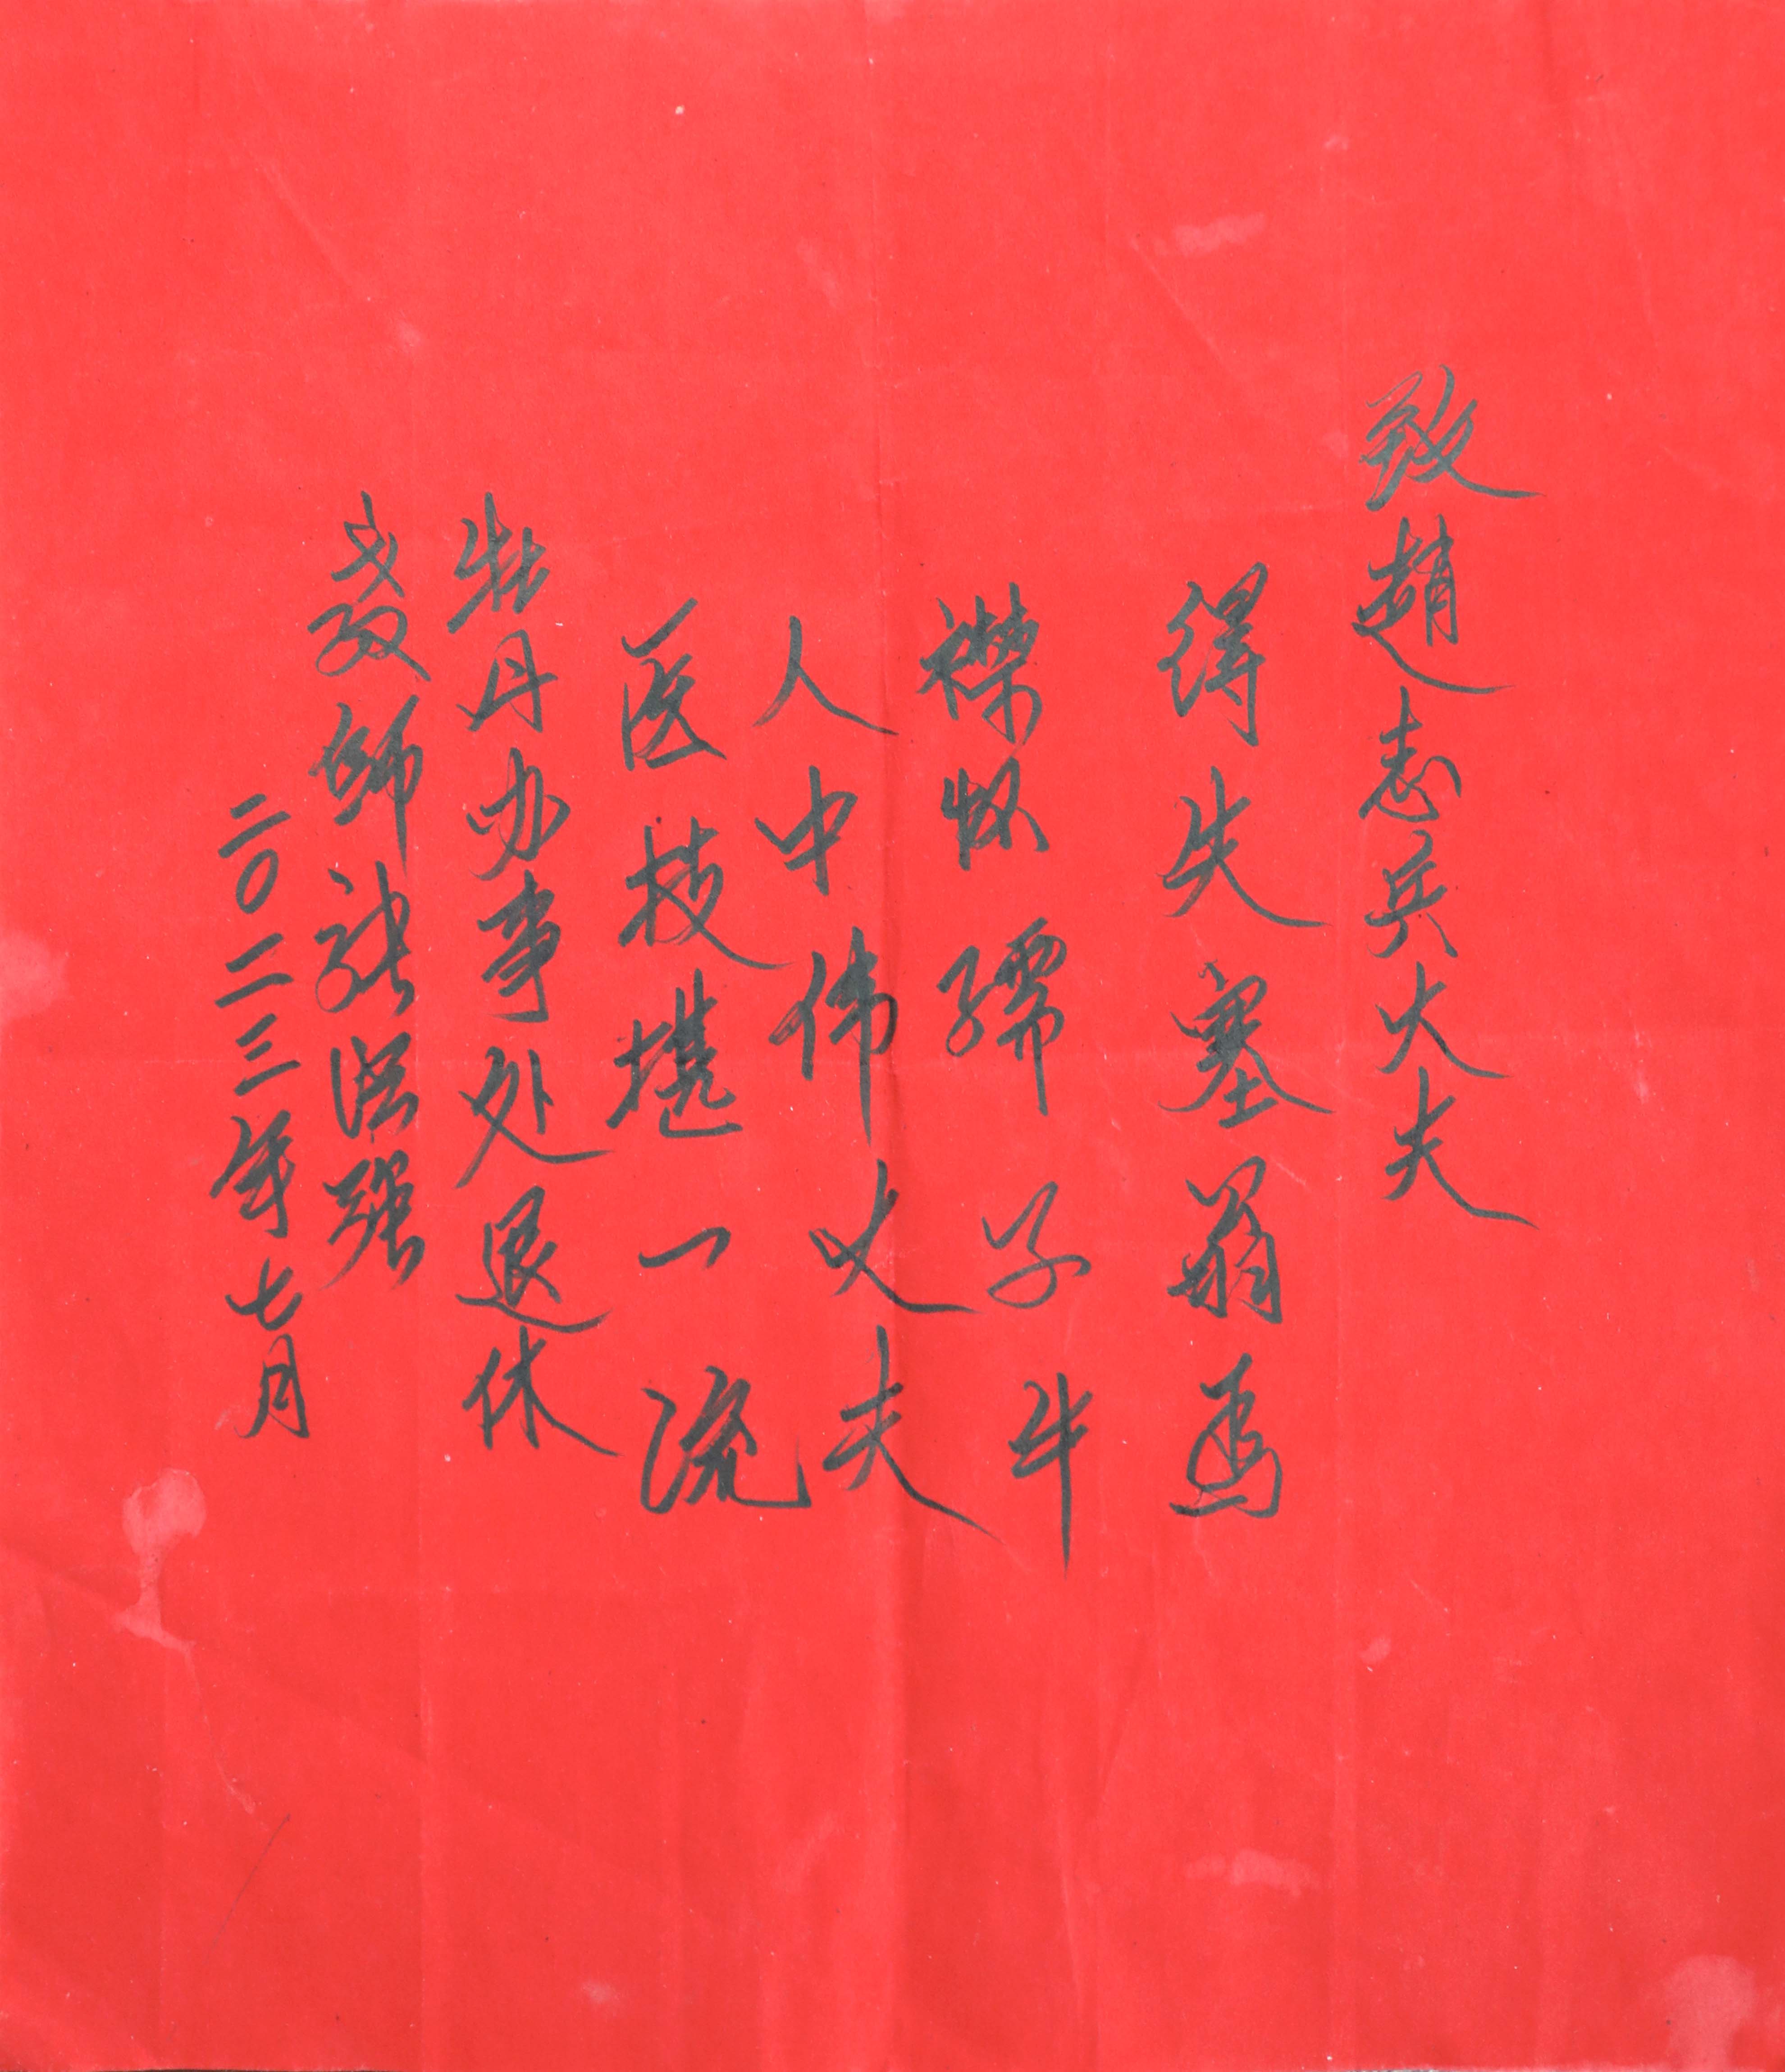 致趙志兵大夫
得失塞翁馬
襟怀孺子牛
人中伟丈夫
医技堪一流
牡丹办事处退休
教师張洪强
二〇二三年七月